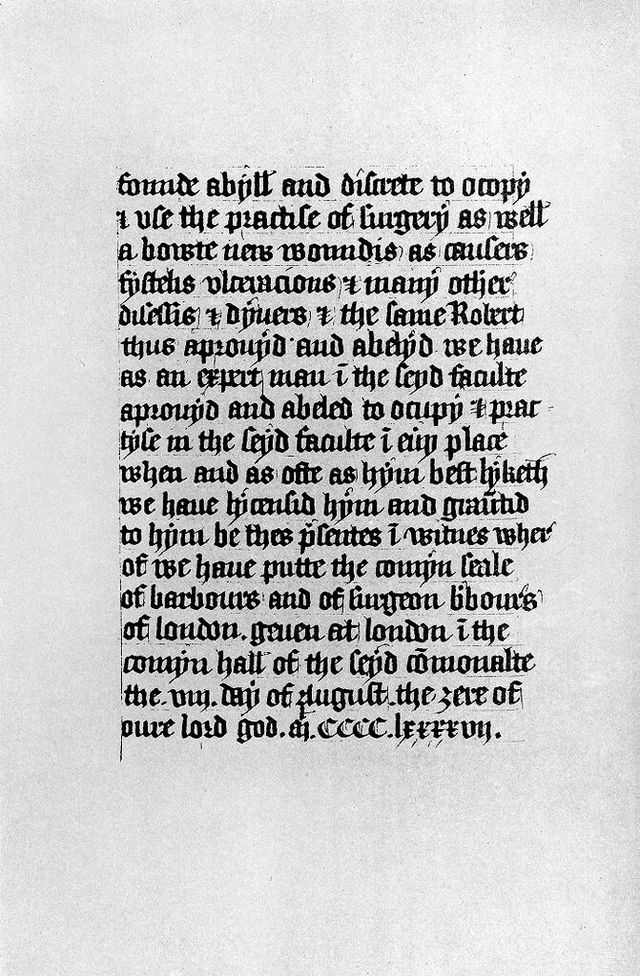 founde abyll and discrete to ocopy
& vse the practise of surgery as well
a bowte new woundis as cansers
fystelis vlceracious & many other
disessis & dyuers & the same Robert
thus aprouyd and abelyd we haue
as an expert man ī the seyd faculte
aprouyd and abeled to ocupy & prac-
tyse in the seyd faculte ī eūy place
when and as ofte as hym best lyketh
we haue lycensid hym and graūtid
to hym be thes p̄sentes ī witnes wher
of we haue putte the comyn seale
of barbours and of surgeon b̄bours
of london. geuen at london ī the
comyn hall of the seyd cōmonalte
the .viij. day of August .the ȝere of
oure lord god. M. CCCC. lxxxxvij.